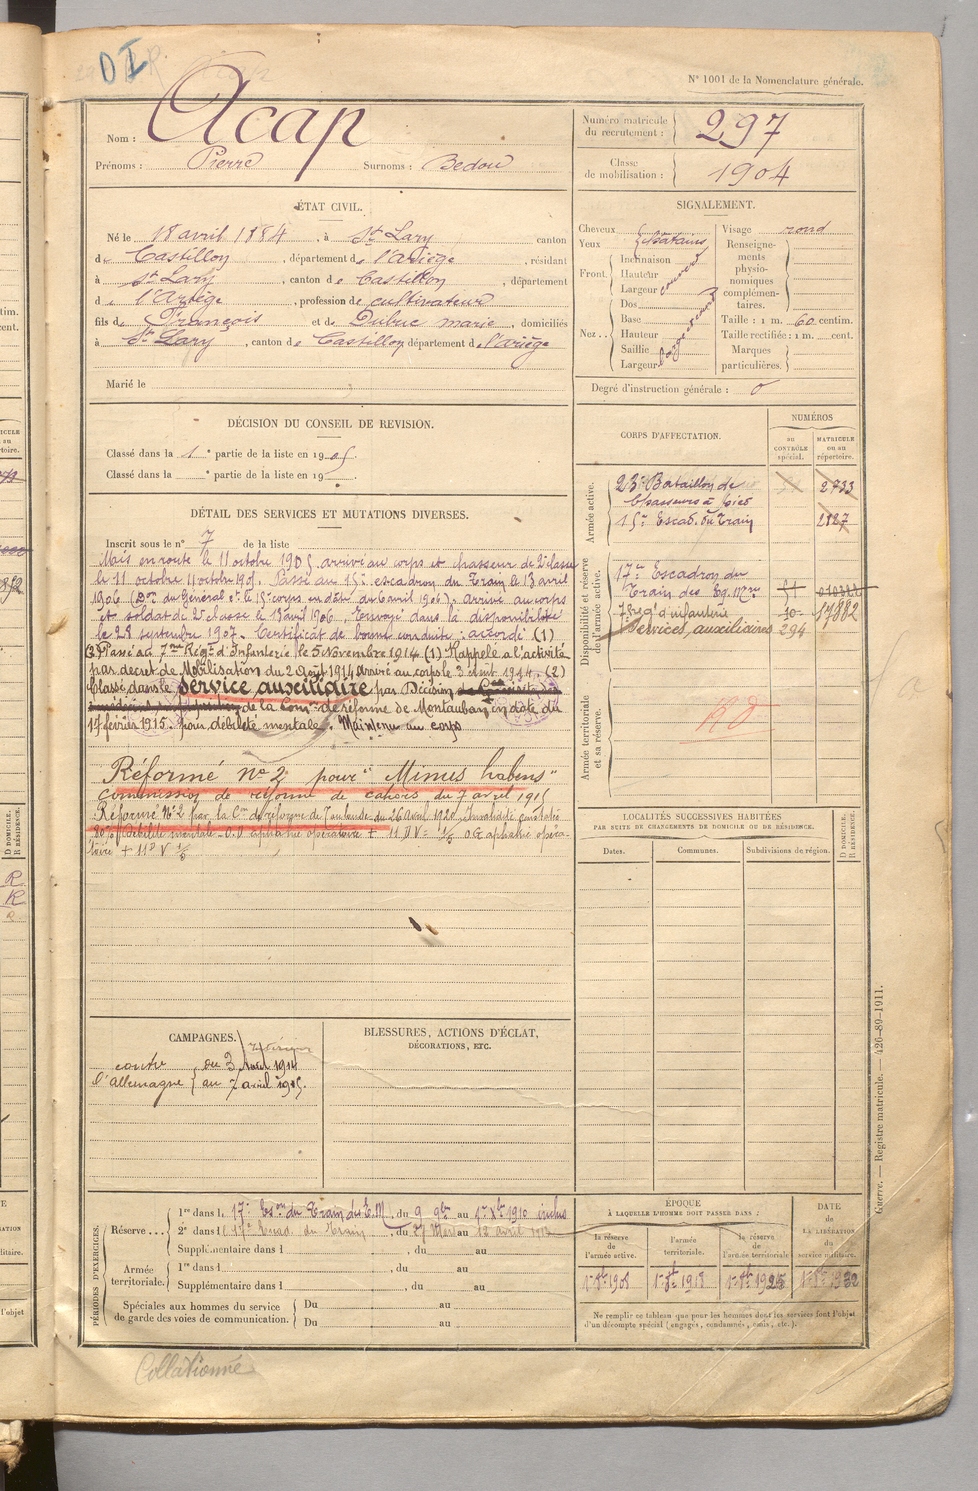 DI
N° 1001 de la Nomenclature générale.
Nom : Acap
Prénoms : Pierre Surnoms : Bedou
Numéro matricule du recrutement : 297
Classe de mobilisation : 1904
ÉTAT CIVIL.
Né le 18 avril 1884, à St Lary canton
de Castillon, département de l'ariège, résidant
à St Lary, canton de Castillon, département
d e l'Ariège, profession de cultivateur
fils de François et de Dubuc marie, domiciliés
à St Lary, canton de Castillon département de l'ariège
Marié le
SIGNALEMENT.
Cheveux
Yeux
châtains
Front.
Inclinaison
Hauteur
Largeur
couvert
Nez...
Dos
Base
Hauteur
Saillie
Largeur
Visage rond
Renseignements physionomiques complémentaires.
Taille : 1 m. 60 centim.
Taille rectifiée : 1 m. cent.
Marques particulières.
Degré d'instruction générale : 0
DÉCISION DU CONSEIL DE REVISION.
Classé dans la 1e partie de la liste en 1905.
Classé dans la e partie de la liste en 19
DÉTAIL DES SERVICES ET MUTATIONS DIVERSES.
Inscrit sous le n° 7 de la liste
Mis en route le 11 octobre 1905 arrivé au corps et chasseur de 2e classe
le 11 octobre 11 octobre 1905. Passé au 15e escadron du Train le 13 avril
1906 (Don du Général ct le 15e corps en date du 6 avril 1906). arrivé au corps
et soldat de 2e classe le 13 avril 1906. Envoyé dans la disponibilité
le 28 septembre 1907. Certificat de bonne conduite : accordé (1)
(2) Passé au 7me Régt d'Infanterie le 5 Novembre 1914 (1) Rappelé à l'activité
par décret de Mobilisation du 2 Août 1914 arrivé au corps le 3 août 1914. (2)
Classé dans le Service auxiliaire par Décision
de la Comon de réforme de Montauban en date du
17 février 1915. pour débilité mentale. Maintenu au corps
Réformé n° 2 pour "Minus habens"
Commission de réforme de cahors du 7 avril 1915
Réformé N° 2 par la Con de réforme de Toulouse du 26 avril 1920. Invalidité
débilité mentale - O.D. aphakie opératoire + 11 D V = 1/5 O G aphakie opéra-
toire + 11 D V 1/5
CORPS D'AFFECTATION.
NUMÉROS
au contrôle spécial.
MATRICULE ou au répertoire.
Armée active.
23e Bataillon de
Chasseurs à pied
2733
15e Escad. du Train
2127
Disponibilité et réserve de l'armée active.
17e Escadron du
Train des Eq. Mres
7e Régt d'infanterie 17882
Services auxiliaires 294
Armée territoriale et sa réserve.
RD
LOCALITÉS SUCCESSIVES HABITÉES
PAR SUITE DE CHANGEMENTS DE DOMICILE OU DE RÉSIDENCE.
Dates.
Communes.
Subdivisions de région.
D DOMICILE.
R RÉSIDENCE.
CAMPAGNES.
contre l'allemagne
du 3 Août 1914
au 7 avril 1915.
BLESSURES, ACTIONS D'ÉCLAT,
DÉCORATIONS, ETC.
PÉRIODES D'EXERCICES.
Réserve...
1re dans l 17e Eson du Train des E.M, du 9 9bre au 1er Xbre 1910 inclus
2e dans l 17e Escad. du Train, du 27 Mars au 12 avril 1912
Supplémentaire dans l , du au
Armée territoriale.
1re dans l , du au
Supplémentaire dans l , du au
Spéciales aux hommes du service
de garde des voies de communication.
Du au
Du au
ÉPOQUE
À LAQUELLE L'HOMME DOIT PASSER DANS :
la réserve de l'armée active.
l'armée territoriale.
la réserve de l'armée territoriale
DATE de LA LIBÉRATION du service militaire.
1er 8bre 1908
1er 8bre 1918
1er 8bre 1925
1er 8bre 1932
Ne remplir ce tableau que pour les hommes dont les services font l'objet
d'un décompte spécial (engagés, condamnés, omis, etc.).
Guerre. — Registre matricule. — 426-89-1911.
Collationné